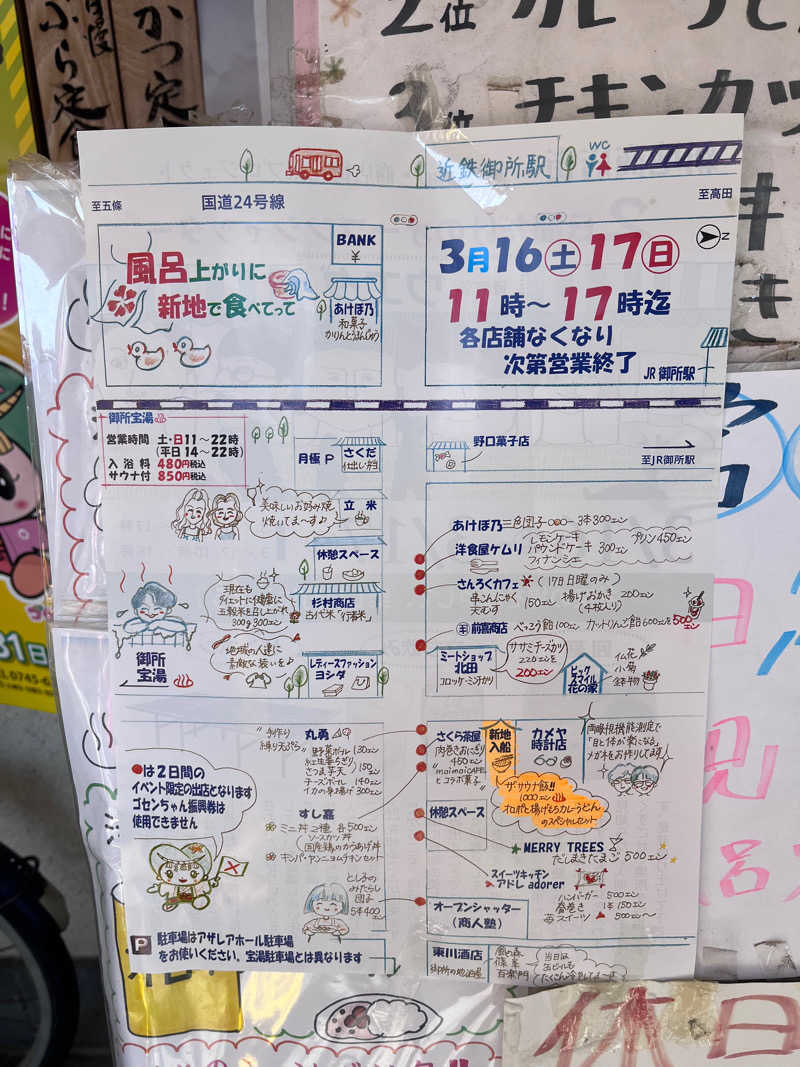 2位
3位
チキンカツ
かつ定
ぷら定食
近鉄御所駅
WC
至五條
国道24号線
至高田
風呂上がりに
新地で食べてって
BANK
¥
あけぼ乃
和菓子
かりんとうまんじゅう
3月16土17日
11時〜17時迄
各店舗なくなり
次第営業終了
N
JR御所駅
御所宝湯
営業時間 土・日11〜22時
(平日14〜22時)
入浴料 480円税込
サウナ付 850円税込
月極P
さくだ
仕出し弁当
野口菓子店
至JR御所駅
美味しいお好み焼
焼いてま〜す♪
立米
休憩スペース
杉村商店
古代米「行者米」
現在も
ダイエットに健康に
五穀米を召し上がれ
300g 300エン
地域の人達に
素敵な装いを♪
レディースファッション
ヨシダ
御所
宝湯
あけぼ乃 三色団子 3本300エン
洋食屋ケムリ
レモンケーキ
パウンドケーキ 300エン
フィナンシェ
プリン450エン
さんろくカフェ ※(17日日曜のみ)
串こんにゃく
天むす
150エン
揚げおかき 200エン
(4枚入り)
前嘉商店 べっこう飴100エン カットりんご飴600エンを500エン
ミートショップ
北田
コロッケ・ミンチカツ
ササミチーズカツ
220エンを
200エン
ビッグ
スマイル
花の家
仏花
小菊
鉢木物
●は2日間の
イベント限定の出店となります
ゴセンちゃん振興券は
使用できません
手作り
練り天ぷら
丸勇
野菜ボール 130エン
紅生姜ちぎり
さつま芋天 150エン
チーズボール 140エン
イカの辛揚げ 300エン
すし嘉
ミニ丼2種 各500エン
ソースカツ丼
国産鶏のからあげ丼
キンパ・ヤンニョムチキンセット
とし子の
みたらし
団子
5本400エン
P 駐車場はアザレアホール駐車場
をお使いください。宝湯駐車場とは異なります
さくら茶屋
肉巻きおにぎり
450エン
"maimaiCAFE
とコラボ菓子"
新地
入船
カメヤ
時計店
両眼視機能測定で
「目と体が楽になる」
メガネをお作りしてます
ザ・サウナ飯!!
1000エン
オロポと揚げもちカレーうどん
のスペシャルセット
休憩スペース
MERRY TREES
だしまきたまご 500エン
スイーツキッチン
アドレ adorer
ハンバーガー 500エン
春巻き 1本150エン
苺スイーツ 500エン〜
オープンシャッター
(商人塾)
東川酒店
御所の地酒屋
風の森
篠峯
百楽門
当日は
缶ビールも
たくさん冷やしてま〜す
休日